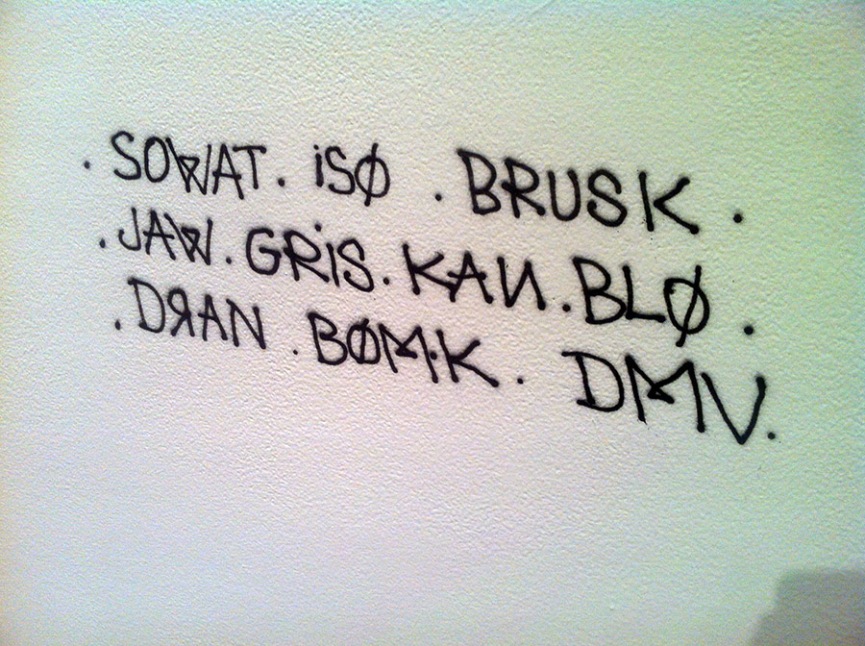 . SOWAT . iSØ . BRUSK .
. JAW . GRiS . KAN . BLØ .
. DRAN . BØMK . DMV .